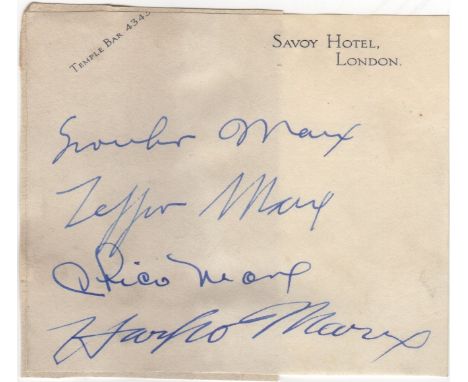 TEMPLE BAR 4343
SAVOY HOTEL,
LONDON.
Groucho Marx
Zeppo Marx
Chico Marx
Harpo Marx